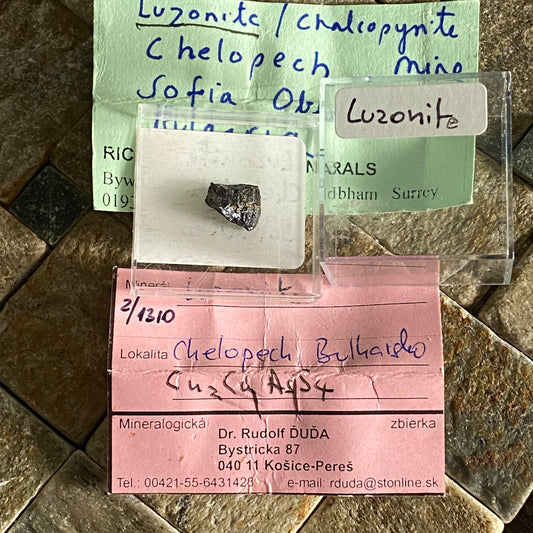 Luzonite / Chalcopyrite
Chelopech Mine
Sofia
Luzonite
RIC
ByW
dbham Surrey
2/1310
Lokalita Chelopech, Bulharsko
Mineralogická zbierka
Dr. Rudolf ĎUĎA
Bystricka 87
040 11 Košice-Pereš
Tel.: 00421-55-6431428 e-mail: rduda@stonline.sk